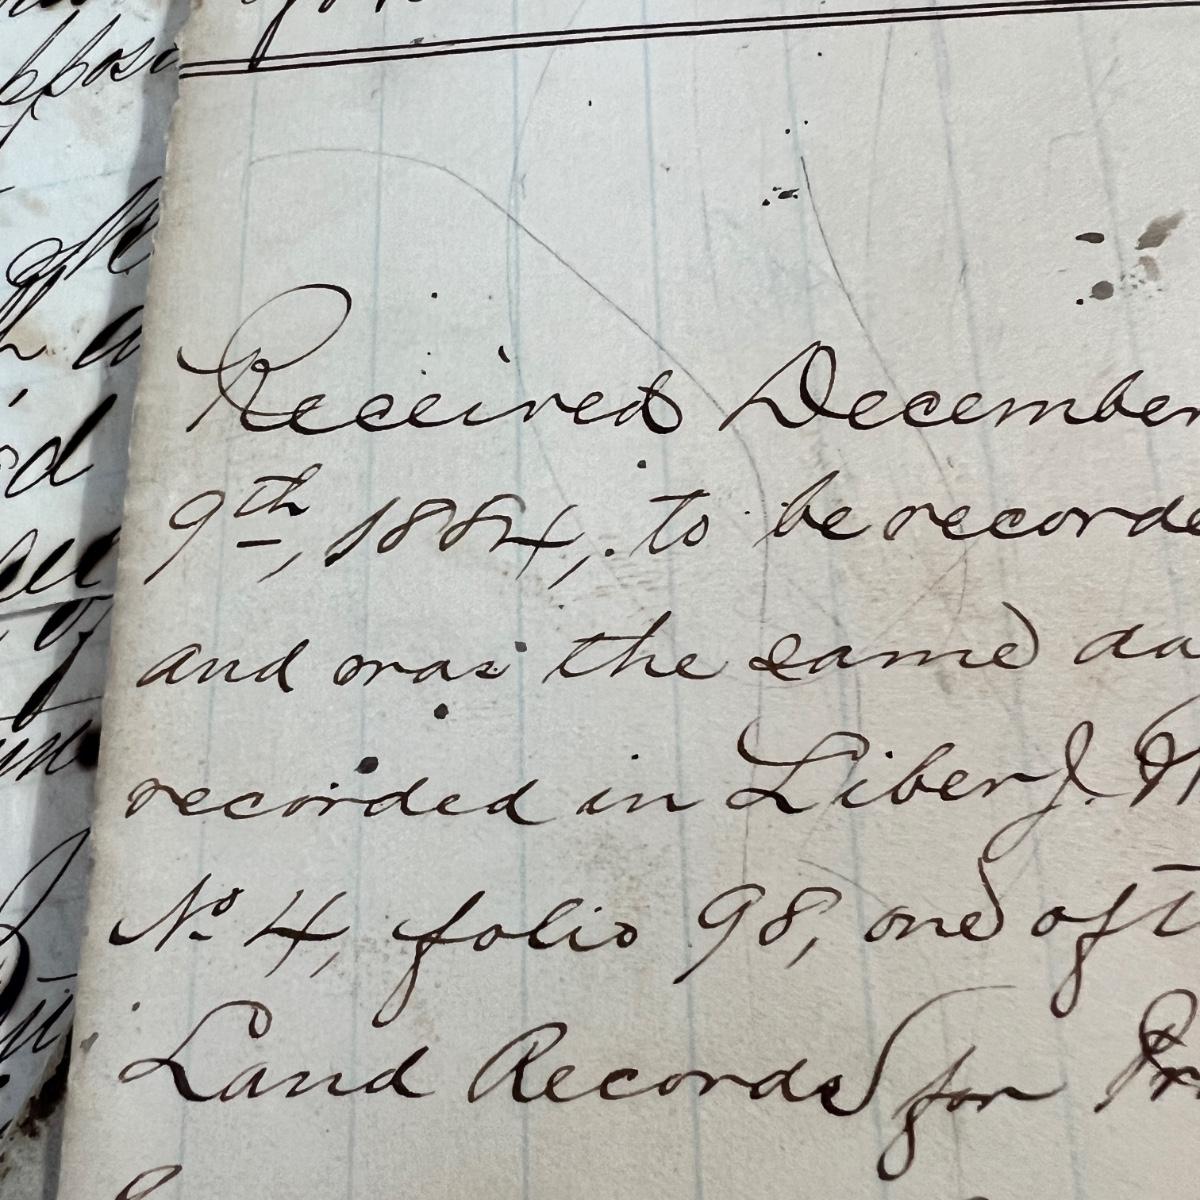 Received December
9th, 1884, to be recorde
and was the same da
recorded in Liber J. W
No 4, folio 98, one of t
Land Records for Pr